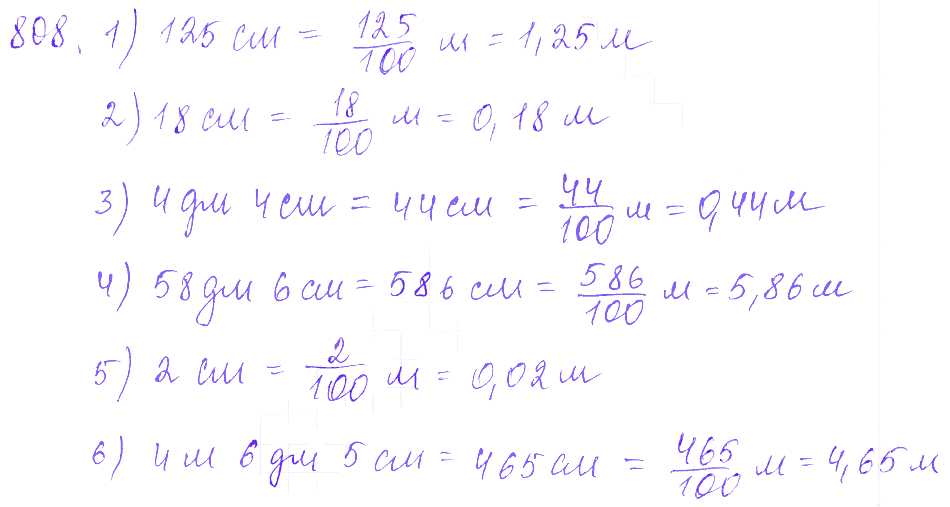 808. 1) 125 см = 125/100 м = 1,25 м
2) 18 см = 18/100 м = 0,18 м
3) 4 дм 4 см = 44 см = 44/100 м = 0,44 м
4) 58 дм 6 см = 586 см = 586/100 м = 5,86 м
5) 2 см = 2/100 м = 0,02 м
6) 4 м 6 дм 5 см = 465 см = 465/100 м = 4,65 м